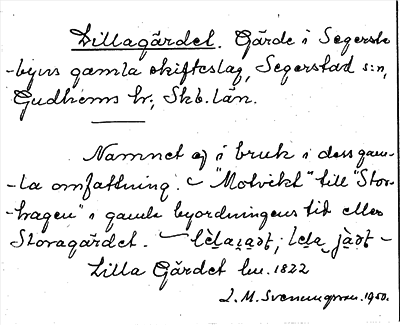 Lillagärdet. Gärde i Segersta
-byns gamla skifteslag, Segerstad s:n,
Gudhems hr., Skb. län.
Namnet ej i bruk i dess gam-
-la omfattning. ~ "Motvikt" till "Stor-
-hagen" i gamla byordningens tid eller
Storagärdet. ~
Lilla Gärdet lm. 1822
L. M. Svenungsson. 1950.